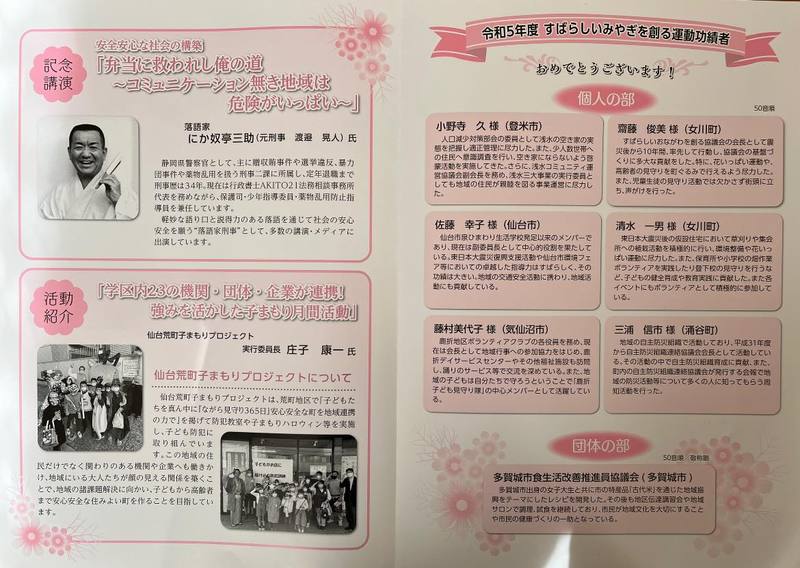 記念
講演
安全安心な社会の構築
「弁当に救われし俺の道
～コミュニケーション無き地域は
危険がいっぱい～」
落語家
にか奴亭三助(元刑事　渡邉　晃人)氏
静岡県警察官として、主に贈収賄事件や選挙違反、暴力
団事件や薬物乱用を扱う刑事二課に所属し、定年退職まで
刑事歴は34年。現在は行政書士AKITO21法務相談事務所
代表を務めながら、保護司・少年指導委員・薬物乱用防止指
導員を兼任しています。
軽妙な語り口と説得力のある落語を通じて社会の安心
安全を願う“落語家刑事”として、多数の講演・メディアに
出演しています。
活動
紹介
「学区内23の機関・団体・企業が連携!
強みを活かした子まもり月間活動」
仙台荒町子まもりプロジェクト
実行委員長　庄子　康一 氏
仙台荒町子まもりプロジェクトについて
仙台荒町子まもりプロジェクトは、荒町地区で「子どもた
ちを真ん中に『ながら見守り365日』安心安全な町を地域連携
の力で」を掲げて防犯教室や子まもりハロウィン等を実施
し、子ども防犯に
取り組んでいま
す。この地域の住
民だけでなく関わりのある機関や企業へも働きか
け、地域にいる大人たちが顔の見える関係を築くこ
とで、地域の諸課題解決に向かい、子どもから高齢者
まで安心安全な住みよい町を作ることを目指してい
ます。
令和5年度 すばらしいみやぎを創る運動功績者
おめでとうございます！
個人の部
50音順
小野寺　久 様（登米市）
人口減少対策部会の委員として浅水の空き家の実
態を把握し適正管理に尽力した。また、少人数世帯へ
の住民へ意識調査を行い、空き家にならないよう啓
蒙活動を実施してきた。さらに、浅水コミュニティ運
営協議会副会長を務め、浅水三大事業の実行委員と
しても地域の住民が親睦を図る事業運営に尽力し
た。
齋藤　俊美 様（女川町）
すばらしいおながわを創る協議会の会長として震
災後から10年間、率先して行動し、協議会の基盤づく
りに多大な貢献をした。特に、花いっぱい運動や、
高齢者の見守りを町ぐるみで行えるよう尽力した。
また、児童生徒の見守り活動では欠かさず街頭に立
ち、声がけを行った。
佐藤　幸子 様（仙台市）
仙台市泉ひまわり生活学校発足以来のメンバーで
あり、現在は副委員長として中心的役割を果たして
いる。東日本大震災復興支援活動や仙台市環境フェ
ア等においての卓越した指導力はすばらしく、その
功績は大きい。地域の交通安全活動に携わり、地域活
動にも貢献している。
清水　一男 様（女川町）
東日本大震災後の仮設住宅において草刈りや集会
所への植栽活動を積極的に行い、環境整備や花いっ
ぱい運動に尽力した。また、保育所や小学校の畑作業
ボランティアを実践したり登下校の見守りを行うな
ど、子どもの健全育成や教育実践に貢献した。また各
イベントにもボランティアとして積極的に参加して
いる。
藤村美代子 様（気仙沼市）
鹿折地区ボランティアクラブの各役員を務め、現
在は会長として地域行事への参加協力をはじめ、鹿
折デイサービスセンターやその他福祉施設も訪問
し、踊りのサービス等で交流を深めている。また、地
域の子どもは自分たちで守ろうということで「鹿折
子ども見守り隊」の中心メンバーとして活躍してい
る。
三浦　信市 様（涌谷町）
地域の自主防災組織で活動しており、平成31年度
から自主防災組織連絡協議会会長として活動してい
る。その活動の中で自主防災組織育成に貢献、また、
町内の自主防災組織連絡協議会が発行する会報で地
域の防災活動等について多くの人に知ってもらう周
知活動を行った。
団体の部
50音順　敬称略
多賀城市食生活改善推進員協議会 ( 多賀城市 )
多賀城市出身の女子大生と共に市の特産品「古代米」を通じた地域振
興をテーマにしたレシピを開発した。その後も地区伝達講習会や地域
サロンで調理、試食を継続しており、市民が地域文化を大切にすること
や市民の健康づくりの一助となっている。